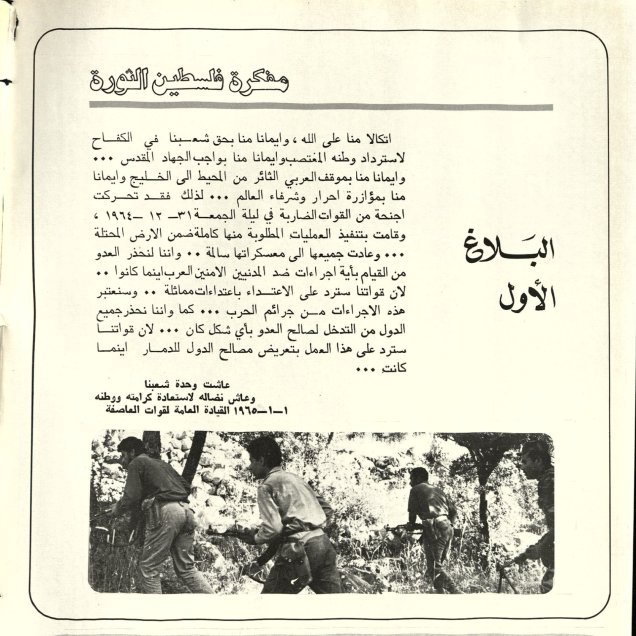 مفكرة فلسطين الثورة
البلاغ
الأول
اتكالا منا على الله ، وايمانا منا بحق شعبنا في الكفاح
لاسترداد وطنه المغتصب وايمانا منا بواجب الجهاد المقدس ...
وايمانا منا بموقف العربي الثائر من المحيط الى الخليج وايمانا
منا بمؤازرة احرار وشرفاء العالم ... لذلك فقد تحركت
اجنحة من القوات الضاربة في ليلة الجمعة ٣١ــ ١٢ ــ١٩٦٤ ،
وقامت بتنفيذ العمليات المطلوبة منها كاملة ضمن الارض المحتلة
... وعادت جميعها الى معسكراتها سالمة .. واننا لنحذر العدو
من القيام بأية اجراءات ضد المدنيين الامنين العرب اينما كانوا ..
لان قواتنا سترد على الاعتداء باعتداءات مماثلة .. وسنعتبر
هذه الاجراءات من جرائم الحرب ... كما واننا نحذر جميع
الدول من التدخل لصالح العدو بأي شكل كان ... لان قواتنا
سترد على هذا العمل بتعريض مصالح الدول للدمار اينما
كانت ...
عاشت وحدة شعبنا
وعاش نضاله لاستعادة كرامته ووطنه
١ــ١ــ١٩٦٥ القيادة العامة لقوات العاصفة